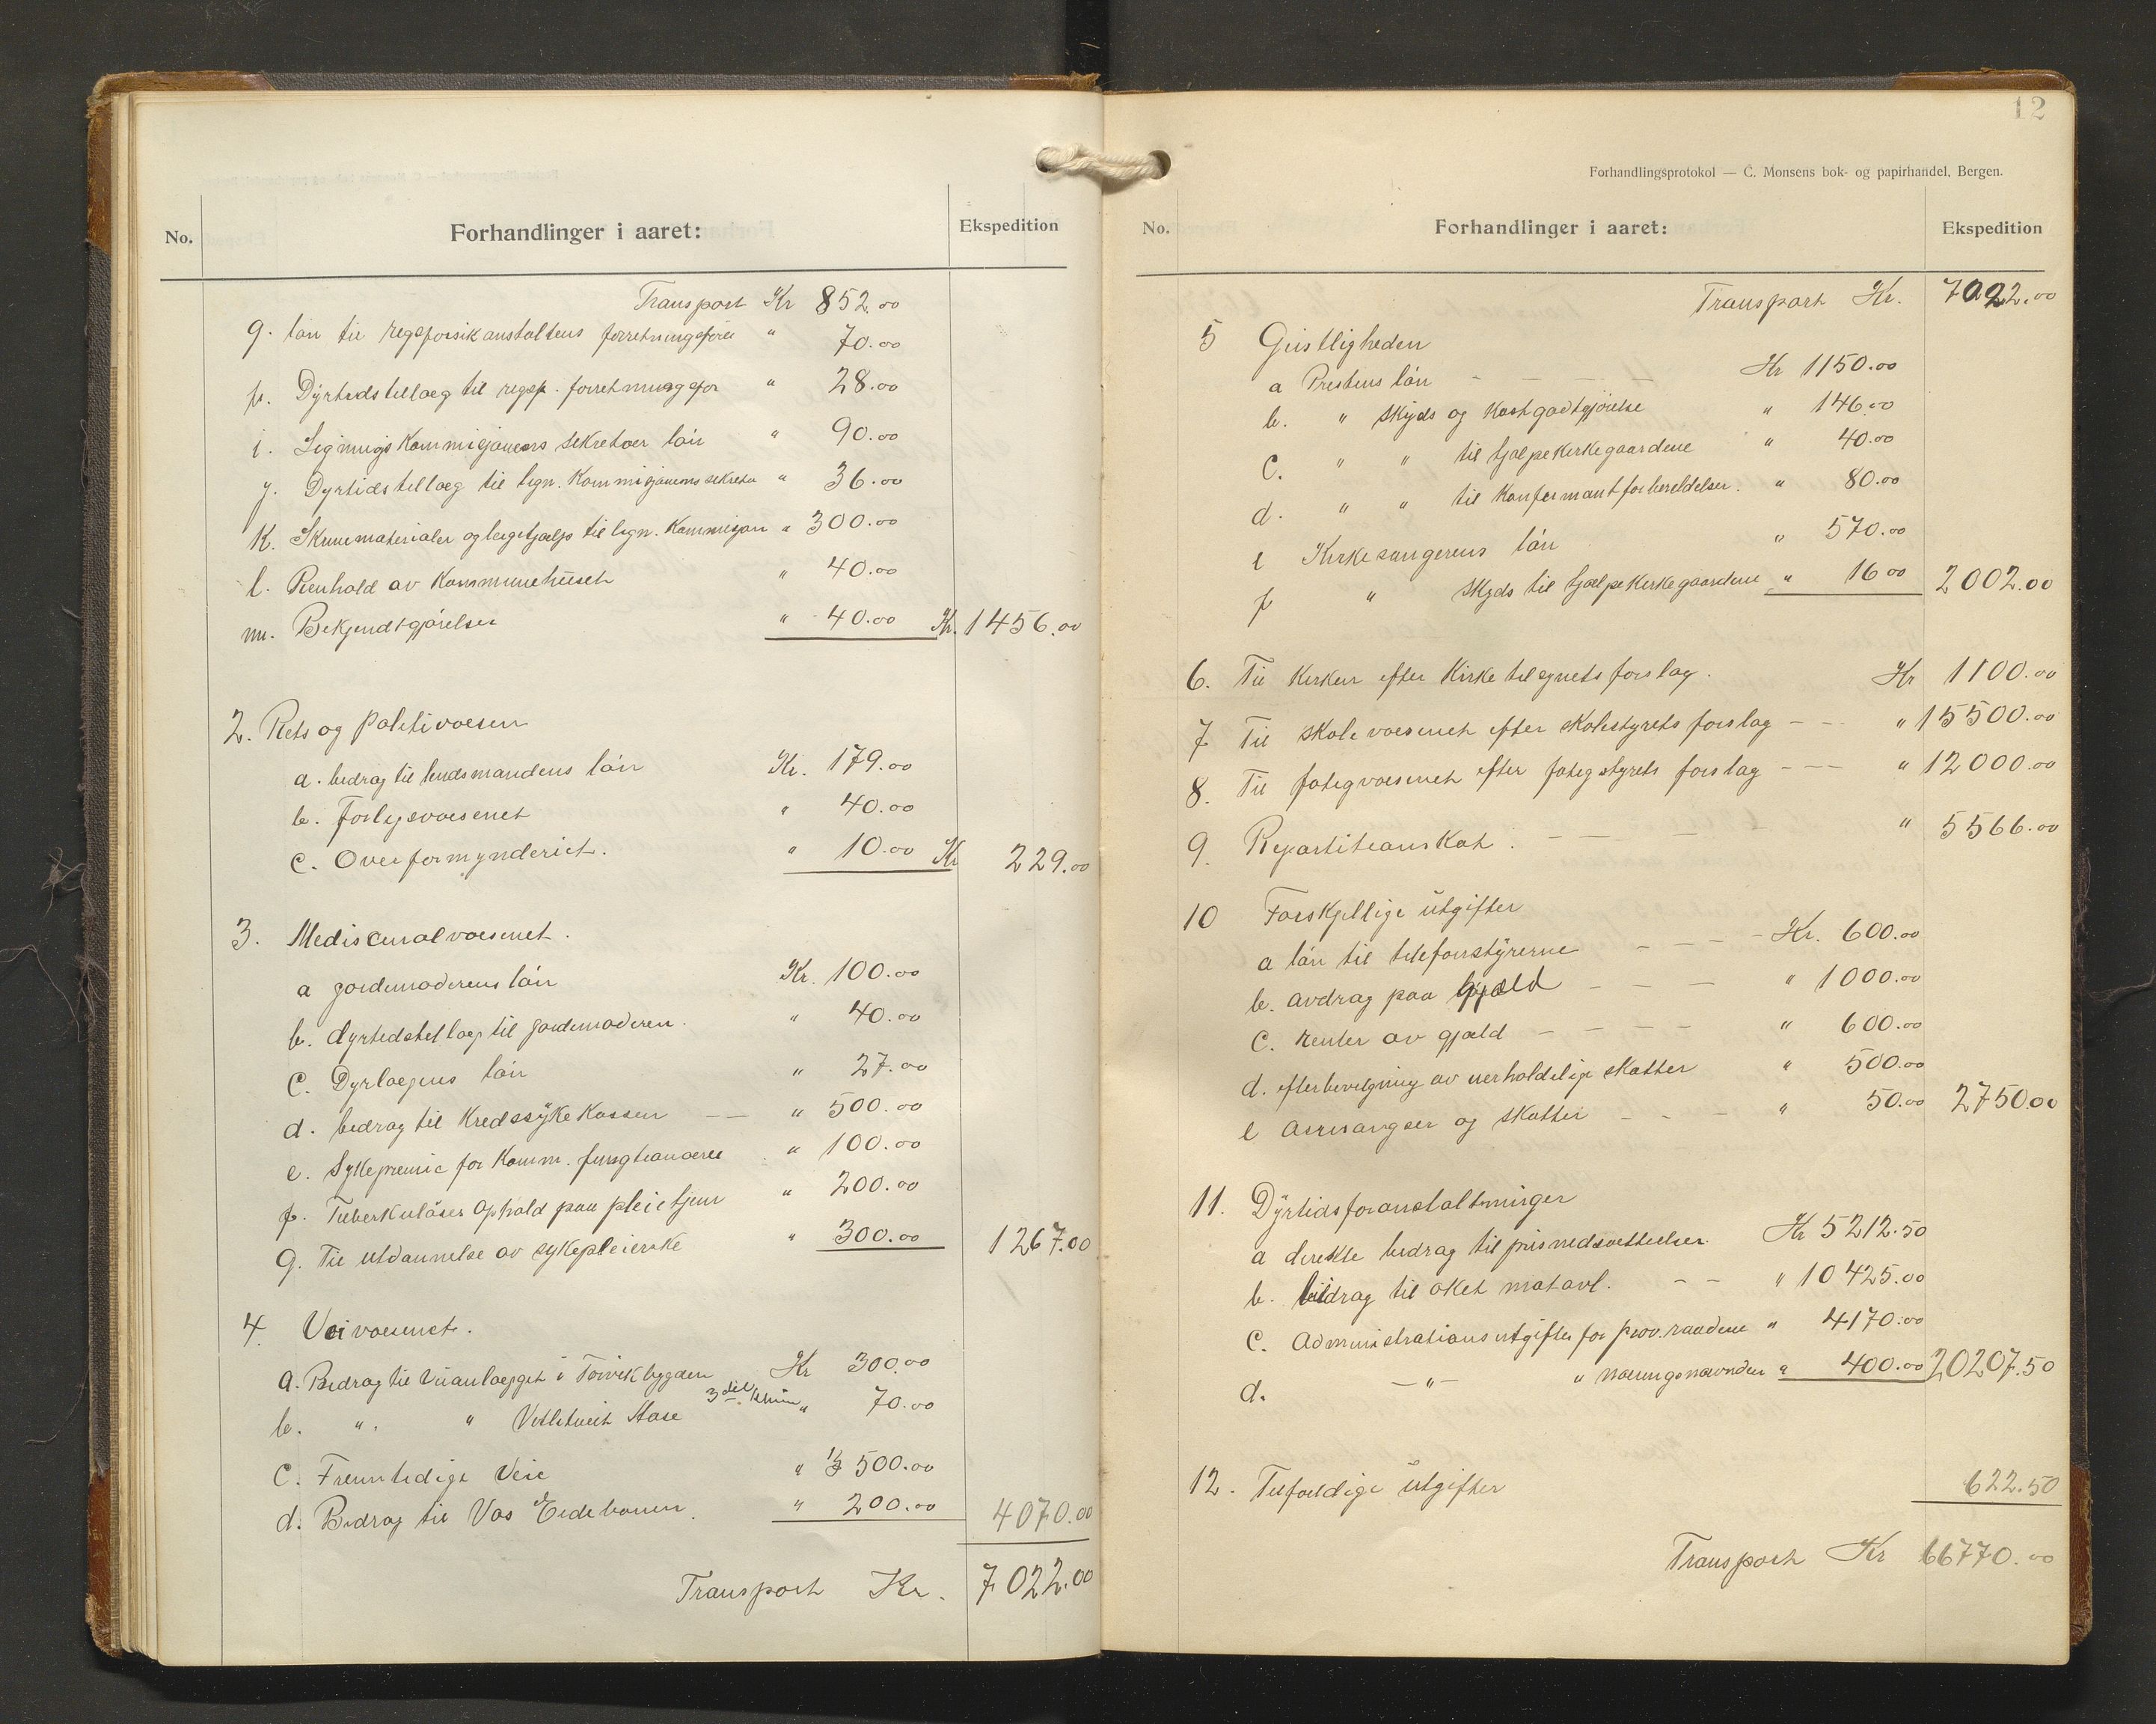 No.
Forhandlinger i aaret:
Ekspedition
Transport Kr 852.00
g. lön til regnforsikanstaltens forretningsförer " 70.00
h. Dÿrtidstillæg til regnf. forretningsför " 28.00
i. Ligningskommisjonens sekretær lön " 90.00
j. Dyrtidstillæg til lign. kommisjonens sekretæ " 36.00
k. Skrivematerialer og leigehjælp til lign. kommisjon " 300.00
l. Renhold av kommunehuset " 40.00
m. Bekjendtgjörelser " 40.00 Kr. 1456.00
2. Rets og Politivæsen
a. bidrag til lensmandens lön Kr. 179.00
b. Forligsvæsenet " 40.00
c. Overformynderiet. " 10.00 Kr 229.00
3. Mediscinalvæsenet.
a jordemoderens lön Kr. 100.00
b. dyrtidstillæg til jordemoderen. " 40.00
c. Dyrlægens lön " 27.00
d. bidrag til Kredssÿkekassen — — " 500.00
e. Sykepremie for komm. fungtionærer " 100.00
f. Tuberkulöses ophold paa pleiehjem " 200.00
g. Til utdannelse av sykepleierske " 300.00 1267.00
4. Veivæsenet.
a. Bidrag til veianlægget i Törvikbygden Kr 300.00
b. " " Vetletveit Aase 3die klasse " 70.00
c. Fremtidige Veie " 3500.00
d. Bidrag til Vos Eidebanen. " 200.00 4070.00
Transport Kr. 7022.00
12
Forhandlingsprotokol — C. Monsens bok- og papirhandel, Bergen.
No.
Forhandlinger i aaret:
Ekspedition
Transport Kr. 7022.00
5 Geistligheden
a Prestens lön - - - - Kr 1150.00
b. " skyds og kostgodtgjörelse " 146.00
c. " " til hjælpekirkegaardene " 40.00
d. " " til konfirmantforberedelser. " 80.00
e Kirkesangerens lön " 570.00
f " skyds til hjælpekirkegaardene " 16 00 2002.00
6. Til kirken efter kirketilsynets forslag. Kr 1100.00
7 Til skolevæsenet efter skolestyrets forslag - - - " 15500.00
8. Til fatigvæsenet efter fatigstyrets forslag - - - " 12000.00
9. Repartitionskat. - - - - " 5566.00
10 Forskjellige ütgifter
a lön til telefonstÿrerne - - - - Kr. 600.00
b. avdrag paa Gjæld - - - " 1000.00
c. renter av gjæld - - - - " 600.00
d. efterbevilgning av uerholdelige skatter " 500.00
e avisanger og skatter - - - " 50.00 2750.00
11. Dÿrtidsforanstaltninger
a direkte bidrag til prisnedsættelser. Kr 5212.50
b. bidrag til öket matavl. - - " 10425.00
c. Administrations utgifter for prov. raadene " 4170.00
d. —"— " næringsnævnden " 400.00 20207.50
12. Tilfældige ütgifter 622.50
Transport Kr 66770.00